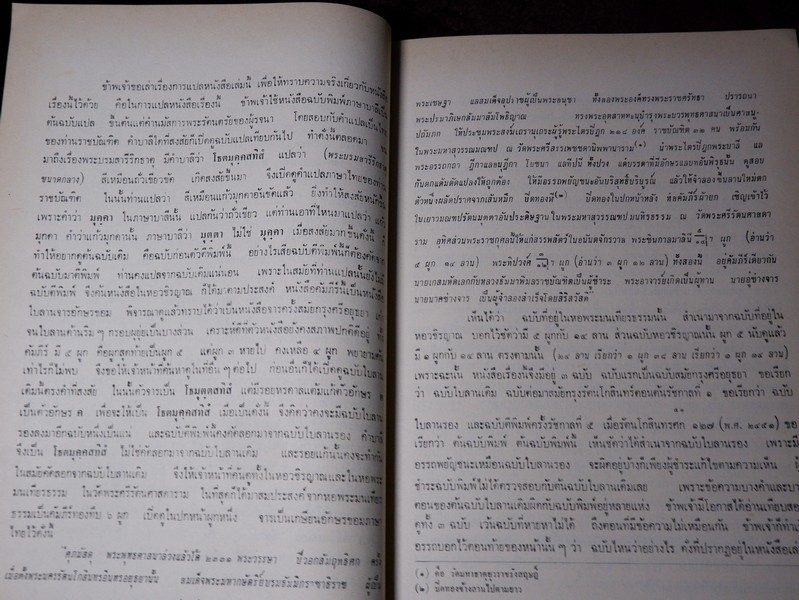 ข้าพเจ้าขอเล่าเรื่องการแปลหนังสือเล่มนี้ เพื่อให้ทราบความจริงเกี่ยวกับหนังสือ
เรื่องนี้ไว้ด้วย คือในการแปลหนังสือเรื่องนี้ ข้าพเจ้าใช้หนังสือฉบับพิมพ์ภาษาบาลีเป็น
ต้นฉบับแปล ขึ้นต้นแต่คำนมัสการพระรัตนตรัยของผู้รจนา โดยสอบกับคำแปลเป็นไทย
ของท่านราชบัณฑิต คำบาลีใดที่สงสัยก็เปิดดูฉบับแปลเทียบกันไป ทำดังนี้ตลอดมา
มาถึงเรื่องพระบรมสารีริกธาตุ มีคำบาลีว่า โธตมุคฺคสทิสํ แปลว่า (พระบรมสารีริกธาตุ
ขนาดกลาง) สีเหมือนถั่วเขียวซีก เกิดสงสัยขึ้นมา จึงเปิดดูคำแปลภาษาไทยของท่าน
ราชบัณฑิต ในนั้นท่านแปลว่า สีเหมือนแก้วมุกดาอันขัดแล้ว ยิ่งทำให้สงสัยหนักขึ้น
เพราะคำว่า มุคฺคา ในภาษาบาลีนั้น แปลกันว่าถั่วเขียว แต่ท่านเอาที่ไหนมาแปลว่า แก้ว
มุกดา คำว่าแก้วมุกดานั้น ภาษาบาลีว่า มุตฺตา ไม่ใช่ มุคฺคา เมื่อสงสัยมากขึ้นดังนี้ ก็
ทำให้อยากดูต้นฉบับเดิม คือฉบับก่อนตัวตีพิมพ์นี้ อย่างไรเสียฉบับตีพิมพ์นี้ก็ต้องคัดจาก
ต้นฉบับมาตีพิมพ์ ท่านคงแปลจากฉบับเดิมแน่นอน เพราะในสมัยที่ท่านแปลนั้นยังไม่มี
ฉบับตีพิมพ์ จึงค้นหนังสือในหอวชิรญาณ ก็ได้มาตามประสงค์ หนังสือคัมภีร์นี้เป็นหนังสือ
ใบลานจารอักษรขอม พิจารณาดูแล้วทราบได้ว่าเป็นหนังสือจารครั้งสมัยกรุงศรีอยุธยา
จนใบลานด้านริมๆ กรอบผุยุ่ยเป็นบางส่วน เคราะห์ดีที่ตัวหนังสือยังคงสภาพปกติดีอยู่ ทั้ง
คัมภีร์ มี ๕ ผูก คือผูกสุดท้ายเป็นผูก ๕ แต่ผูก ๓ หายไป คงเหลือ ๔ ผูก พยายามค้น
เท่าไรก็ไม่พบ จึงขอให้เจ้าหน้าที่ค้นหาดูในที่อื่นๆ ต่อไป ก่อนอื่นก็ได้เปิดดูฉบับใบลาน
เดิมนี้ตรงคำที่สงสัย ในนั้นตัวจารเป็น โธตมุตฺตสทิสํ แต่มีรอยหรดาลแต้มแก้ตัวอักษร ต
เป็นตัวอักษร ค เพื่อจะให้เป็น โธตมุคฺคสทิสํ เมื่อเป็นดังนี้ จึงคิดว่าคงจะมีฉบับใบลาน
รองลงมาอีกฉบับหนึ่งเป็นแน่ และฉบับตีพิมพ์นี้คงคัดลอกมาจากฉบับใบลานรอง คำบาลี
จึงเป็น โธตมุคฺคสทิสํ ไม่ใช่คัดลอกมาจากฉบับใบลานเดิม และรอยแก้นั้นคงจะทำกัน
ในสมัยคัดลอกจากฉบับใบลานเดิม จึงให้เจ้าหน้าที่ค้นดูทั้งในหอวชิรญาณและในหอพระ
มนเทียรธรรม ในวัดพระศรีรัตนศาสดาราม ในที่สุดก็ได้มาสมประสงค์ จากหอพระมนเทียร
ธรรมเป็นคัมภีร์ทองทึบ ๖ ผูก เปิดดูในปกหน้าผูกหนึ่ง จารเป็นเกษียนอักษรขอมภาษา
ไทยไว้ดังนี้
ศุภมัสดุ พระพุทธศาสนาล่วงแล้วได้ ๒๓๓๑ พระวรรษา ปีวอกสัมฤทธิศก ครั้ง
เมื่อตั้งพระนครรัตนโกสินทรอินทรอยุธยานั้น สมเด็จพระมหากษัตริย์บรมธรรมิกราชาธิราช ผู้เป็น
พระเชษฐา แลสมเด็จอุปราชผู้เป็นพระอนุชา ทั้งสองพระองค์ทรงพระราชศรัทธา ปรารถนา
พระปรมาภิเษกสัมมาสัมโพธิญาณ ทรงพระอุตสาหทะนุบำรุงพระบวรพุทธศาสนาเป็นศาสนู-
ปถัมภก ให้ประชุมพระสงฆ์เถรานุเถระผู้รู้พระไตรปิฎก ๒๑๘ องค์ ราชบัณฑิต ๓๒ คน พร้อมกัน
ในพระมหาสุวรรณมณฑป ณ วัดพระศรีสรรเพชดานิพพานาราม(๑) นำพระไตรปิฎกพระบาลี แล
พระอรรถกถา ฎีกาแลอนุฎีกา โยชนา แลทีปนี ทั้งปวง แต่บรรดาที่มีอักษรแลบทอันพิรุธนั้น ดูสอบ
กันตกแต้มดัดแปลงให้ถูกต้อง ให้มีอรรถพยัญชนะอันบริสุทธิ์บริบูรณ์ แล้วให้จำลองขึ้นลานใหม่ตก
ตัวหนึ่งผลัดปราศจากเส้นหมึก ปิดทองที(๒) ปิดทองในปกหน้าหลัง ห่อคัมภีร์ผ้ายก เชิญเข้าไว้
ในเยาวมณฑปรัตนมุกดาอันประดิษฐานในพระมหาสุวรรณฑปมนทิรธรรม ณ วัดพระศรีรัตนศาสดา
ราม อุทิศส่วนพระราชกุศลนี้ให้แก่สรรพสัตว์ในอนันตจักรวาล พระชินกาลมาลินี ฯ ผูก (อ่านว่า
๕ ผูก ๑๔ ลาน) พระทีปวงศ์ ฯ ผูก (อ่านว่า ๓ ผูก ๑๒ ลาน) ทั้งสองนี้ อยู่คัมภีร์เดียวกัน
นายเกสมหัดเลกกับหลวงธัมมาพิมลราชบัณฑิตเป็นผู้ชำระ พระอาจารย์เกิดเป็นผู้ทาน นายอู่ช่างจาร
นายนาคช่างจาร เป็นผู้จำลองสำเร็จโดยสิริสวัสดิ์
เห็นได้ว่า ฉบับที่อยู่ในหอพระมนเทียรธรรมนั้น สำเนามาจากฉบับที่อยู่ใน
หอวชิรญาณ บอกไว้ชัดว่ามี ๕ ผูกกับ ๑๔ ลาน ส่วนฉบับหอวชิรญาณนั้น ผูก ๕ นับดูแล้ว
มี ๑ ผูกกับ ๑๔ ลาน ตรงตามนั้น (๒๔ ลาน เรียกว่า ๑ ผูก ๓๘ ลาน เรียกว่า ๑ ผูก ๑๔ ลาน)
เพราะฉะนั้น หนังสือเรื่องนี้จึงมีอยู่ ๓ ฉบับ ฉบับแรกเป็นฉบับสมัยกรุงศรีอยุธยา ขอเรียก
ว่า ฉบับใบลานเดิม ฉบับต่อมาสมัยกรุงรัตนโกสินทร์ตอนต้นรัชกาลที่ ๑ ขอเรียกว่า ฉบับ
ใบลานรอง และฉบับตีพิมพ์ครั้งรัชกาลที่ ๕ เมื่อรัตนโกสินทรศก ๑๒๗ (พ.ศ. ๒๔๕๑) ขอ
เรียกว่า ต้นฉบับพิมพ์ ต้นฉบับพิมพ์นี้ เห็นชัดว่าได้สำเนาจากฉบับใบลานรอง เพราะมี
อรรถพยัญชนะเหมือนฉบับใบลานรอง จะผิดอยู่บ้างก็เพียงผู้ชำระแก้ไขตามความเห็น ผู้
ชำระฉบับพิมพ์ไม่ได้ตรวจสอบกับต้นฉบับใบลานเดิมเลย เพราะข้อความบางคำและบาง
ตอนของต้นฉบับใบลานเดิมผิดกับฉบับพิมพ์อยู่หลายแห่ง ข้าพเจ้ามีโอกาสได้อ่านเทียบสอบ
ดูทั้ง ๓ ฉบับ เว้นฉบับที่หายหาไม่ได้ ถึงตอนที่มีข้อความไม่เหมือนกัน ข้าพเจ้าก็ทำ
อรรถบอกไว้ตอนท้ายของหน้านั้นๆ ว่า ฉบับไหนว่าอย่างไร ดังที่ปรากฏอยู่ในหนังสือเล่ม
(๑) คือ วัดมหาธาตุยุวราชรังสฤษฎิ์
(๒) ปิดทองข้างลานไปตามยาว